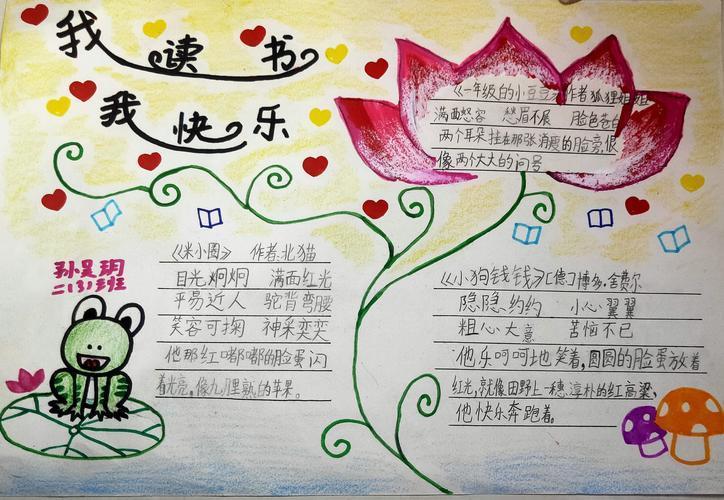 我读书
我快乐
《一年级的小豆豆》作者狐狸姐姐
满面怒容 愁眉不展 脸色苍白
两个耳朵挂在那张消瘦的脸旁,很
像两个大大的问号
孙昊玥
二(3)班
《米小圈》 作者:北猫
目光炯炯 满面红光
平易近人 驼背弯腰
笑容可掬 神采奕奕
他那红嘟嘟的脸蛋闪
着光亮,像九里熟的苹果。
《小狗钱钱》[德]博多·舍费尔
隐隐约约 小心翼翼
粗心大意 苦恼不已
他乐呵呵地笑着,圆圆的脸蛋放着
红光,就像田野上一穗淳朴的红高粱、
他快乐奔跑着。